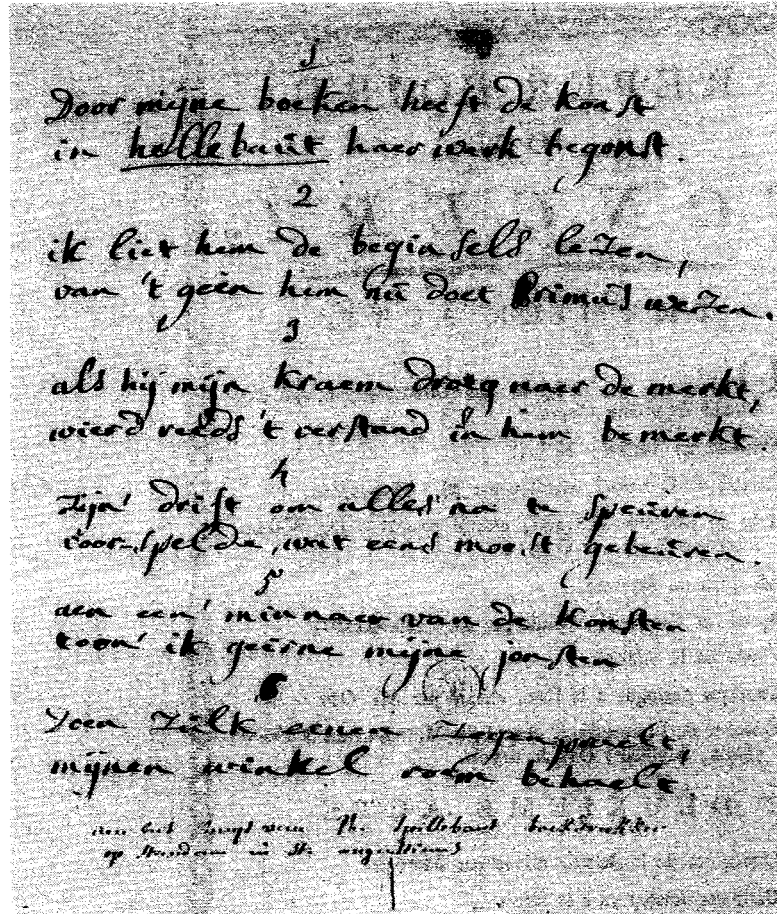 1
Door mijne boeken heeft de konst
in hollebaut haer werk begonst.
2
ik liet hem de beginsels lezen,
van 't geen hem nu doet Primus wezen.
3
als hij mijn kraem droeg naer de merkt,
wierd reeds 't verstand in hem bemerkt
4
zijn' drift om alles na te speuren
voorspelde, wat eens moest gebeuren.
5
aen een' minnaer van de konsten
toon' ik geirne mijne jonsten
6
Toen zulk eenen zegenpraelt,
mijnen winkel roem behaelt
aen het huys van Ph. Spillebaut boekdrukker
op in St. augustinus